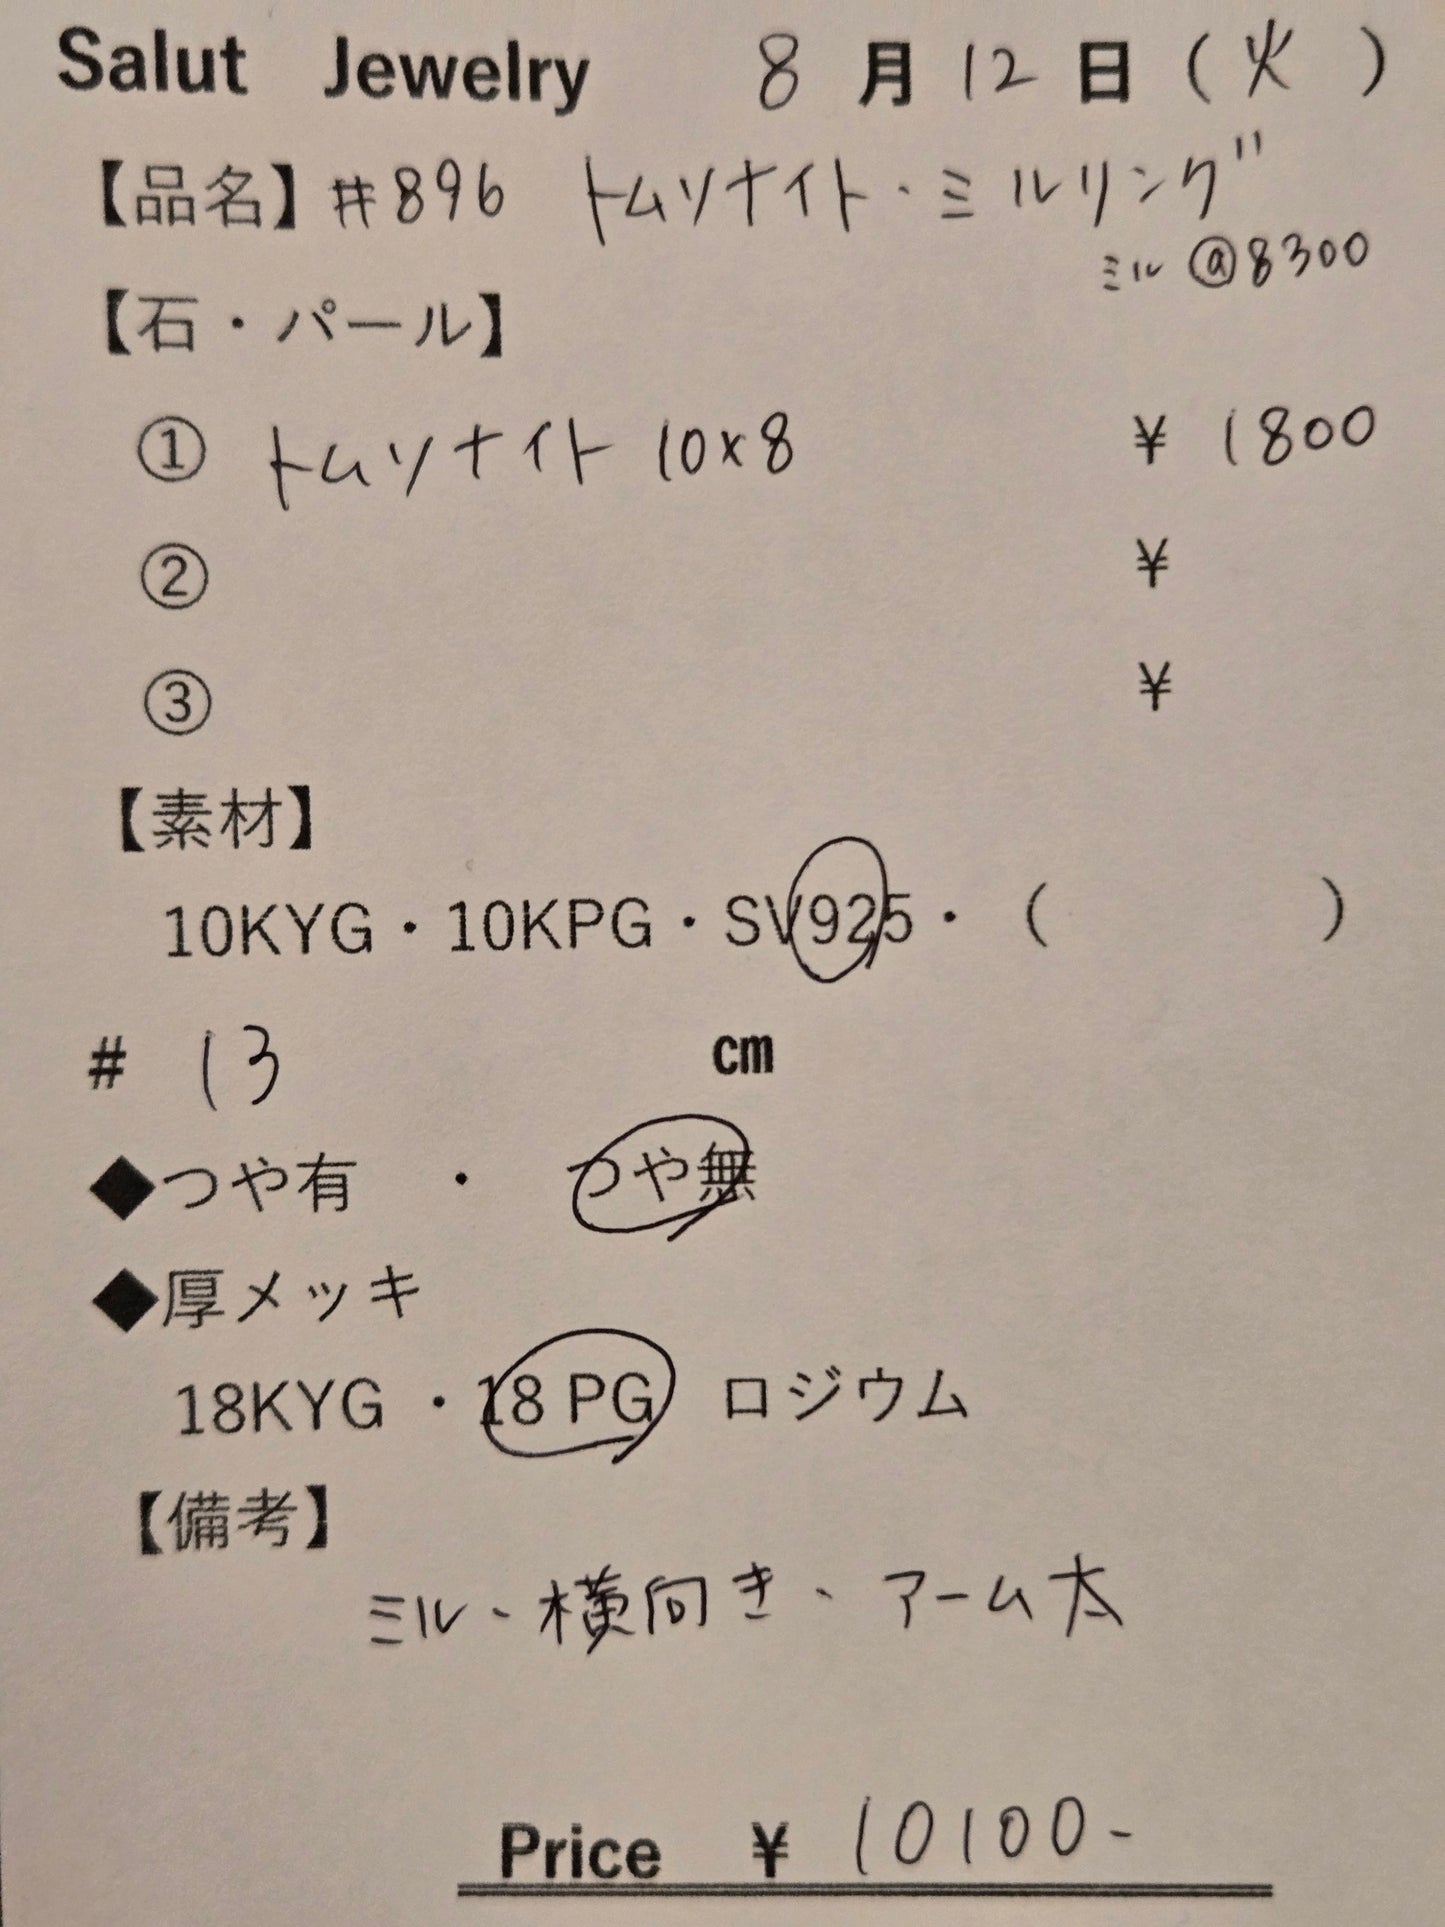 Salut Jewelry 8月12日(火)
【品名】#896 トムソナイト・ミルリング
ミル @8300
【石・パール】
① トムソナイト 10×8 ¥ 1800
② ¥
③ ¥
【素材】
10KYG・10KPG・SV925・( )
# 13 cm
◆つや有 ・ つや無
◆厚メッキ
18KYG ・18 PG ロジウム
【備考】
ミル、横向き、アーム太
Price ¥ 10100-